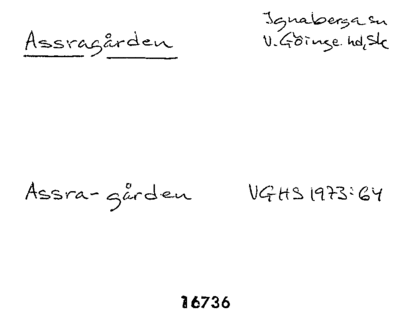 Ignaberga sn
Assragården V. Göinge hd, Sk
Assra-gården VGHS 1973:64
16736